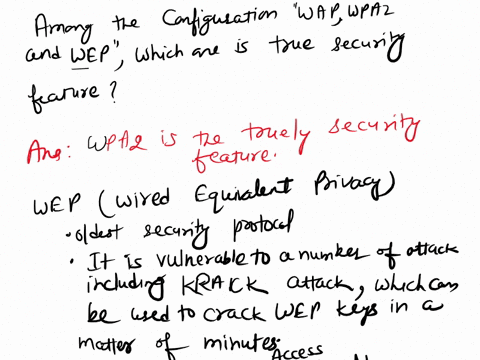 Among the Configuration "WAP, WPA2
and WEP", which one is true security
feature?
Ans: WPA2 is the truely security
feature.
WEP (Wired Equivalent Privacy)
• oldest security protocol
• It is vulnerable to a number of attack
including KRACK attack, which can
be used to crack WEP keys in a
matter of minutes.
Access